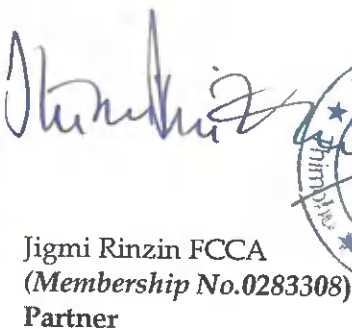 Thimphu
Jigmi Rinzin FCCA
(Membership No.0283308)
Partner